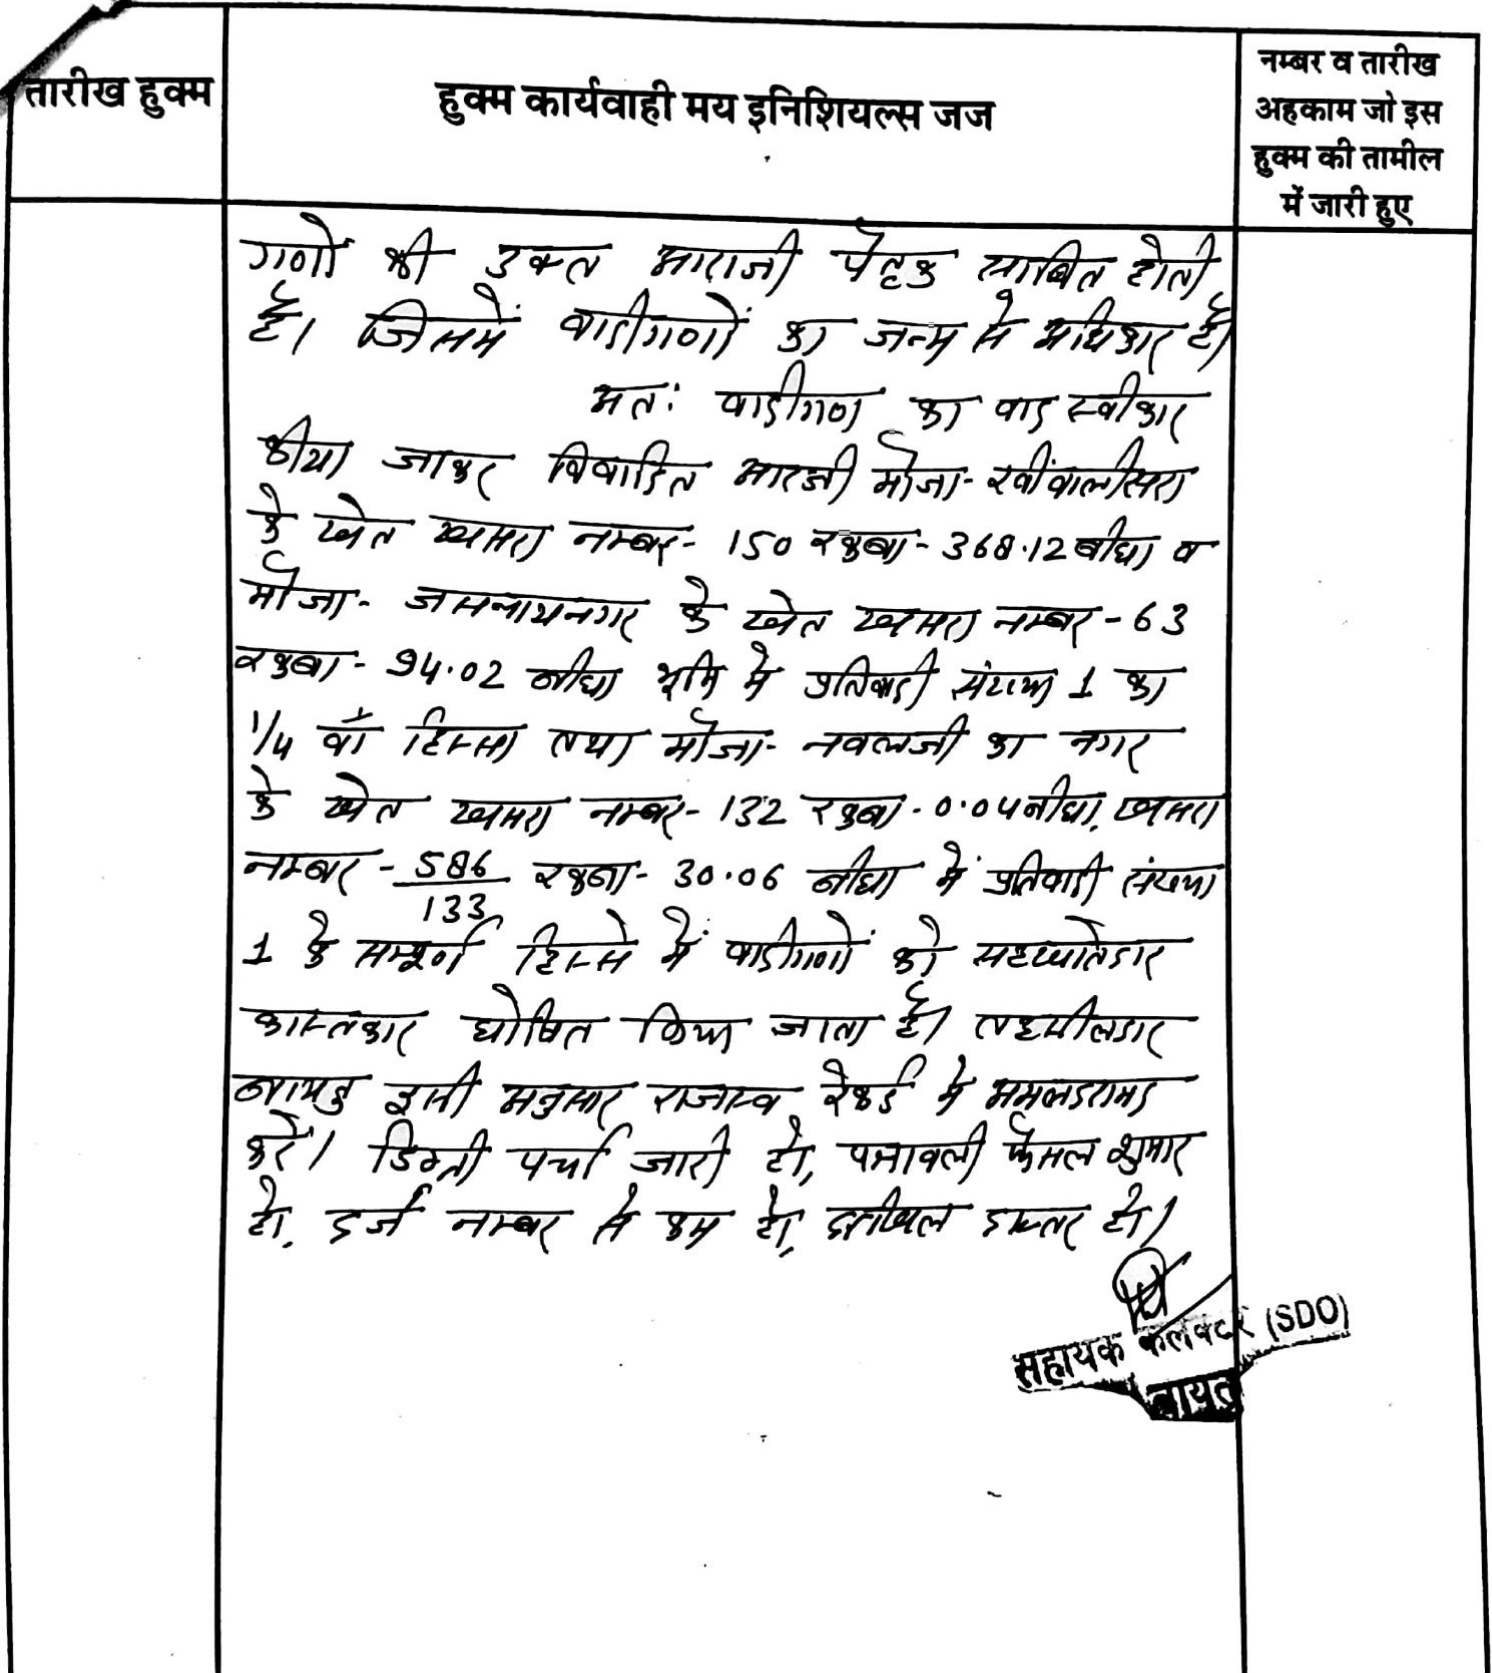 तारीख हुक्म
हुक्म कार्यवाही मय इनिशियल्स जज
नम्बर व तारीख
अहकाम जो इस
हुक्म की तामील
में जारी हुए
गणों की उक्त आराजी पैतृक साबित होती
है। जिसमें वादीगणों का जन्म से अधिकार है।
अतः वादीगण का वाद स्वीकार
कीया जाकर विवादित आरजी मौजा- रवींवालीसरा
के खेत खसरा नम्बर- 150 रकबा- 368.12 बीघा व
मौजा- जसनाथनगर के खेत खसरा नम्बर - 63
रकबा- 94.02 बीघा भूमि मे प्रतिवादी संख्या 1 का
1/4 वाँ हिस्सा तथा मौजा- नवलजी का नगर
के खेत खसरा नम्बर- 132 रकबा- 0.04 बीघा, खसरा
नम्बर - 586/133 रकबा- 30.06 बीघा में प्रतिवादी संख्या
1 के सम्पूर्ण हिस्से में वादीगणों को सहखातेदार
कास्तकार घोषित किया जाता है। तहसीलदार
बायतु इसी अनुसार राजस्व रेकर्ड मे अमलदरामद
करें। डिग्री पर्चा जारी हो, पत्रावली फैसल शुमार
हो, दर्ज नम्बर से कम हो, दाखिल दफ्तर हो।
सहायक कलक्टर (SDO)
बायतु